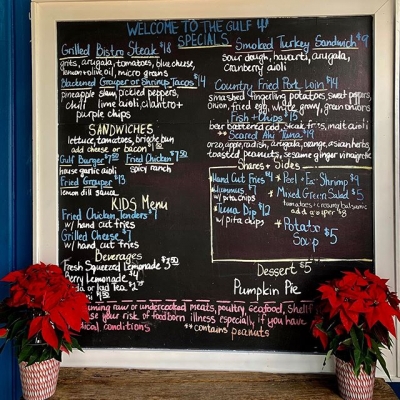 WELCOME TO THE GULF
SPECIALS
Grilled Bistro Steak $18
grits, arugala, tomatoes, blue cheese,
lemon + olive oil, micro grains
Blackened Grouper or Shrimp Tacos $14
pineapple slaw, pickled peppers,
chili lime aioli, cilantro +
purple chips
SANDWICHES
lettuce, tomatoes, brioche bun
add cheese or bacon $1.50
Gulf Burger $7.50 Fried Chicken $7.50
house garlic aioli spicy ranch
Fried Grouper $13
lemon dill sauce
KIDS Menu
Fried Chicken Tenders $7
w/ hand cut fries
Grilled Cheese $7
w/ hand cut fries
Beverages
Fresh Squeezed Lemonade $3.50
Berry Lemonade $4
or Iced Tea $2
Smoked Turkey Sandwich $9
sour dough, havarti, arugala,
cranberry aioli
Country Fried Pork Loin $14
smashed fingerling potatoes, sweet peppers,
onion, fried egg, white gravy, green onions
Fish + Chips $15
beer battered cod, steak fries, malt aioli
** Seared Ahi Tuna $19
orzo, apple, radish, arugala, orange, asian herbs
toasted peanuts, sesame ginger vinaigrette
Shares + Sides
Hand Cut Fries $4
Hummus $7
w/ pita chips
Tuna Dip $12
w/ pita chips
* Peel + Eat Shrimp $9
* Mixed Green Salad $5
tomatoes + creamy balsamic
add grouper $8
* Potato Soup $5
Dessert $5
Pumpkin Pie
raw or undercooked meats, poultry, seafood,
your risk of foodborn illness especially if you have
conditions
** contains peanuts